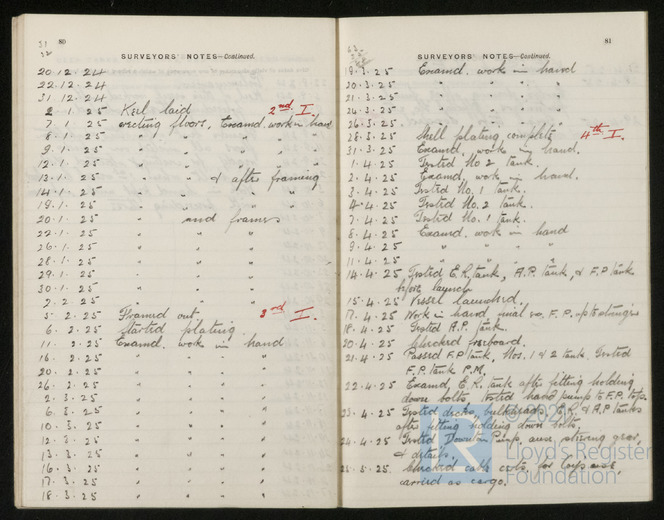 31
32
80
SURVEYORS' NOTES—Continued.
20.12.24
22.12.24
31.12.24
2.1.25 Keel laid 2nd I.
7.1.25 erecting floors, Examd. work in hand
8.1.25 " " " " "
9.1.25 " " " " "
12.1.25 " " " " "
13.1.25 " " " & after framing
14.1.25 " " " " "
19.1.25 " " " " "
20.1.25 " and frames
22.1.25 " " "
26.1.25 " " "
28.1.25 " " "
29.1.25 " " "
30.1.25 " " "
2.2.25 " " "
5.2.25 Framed out 3rd I.
6.2.25 Started plating
11.2.25 Examd. work in hand
16.2.25 " " " "
20.2.25 " " " "
26.2.25 " " " "
2.3.25 " " " "
6.3.25 " " " "
10.3.25 " " " "
12.3.25 " " " "
13.3.25 " " " "
16.3.25 " " " "
18.3.25 " " " "
81
SURVEYORS' NOTES—Continued.
19.3.25 Examd. work in hand
20.3.25 " " " "
21.3.25 " " " "
24.3.25 " " " "
26.3.25 " " " "
28.3.25 Shell plating complete 4th I.
31.3.25 Examd. work in hand.
1.4.25 Tested No. 2 tank.
2.4.25 Examd, work in hand.
3.4.25 Tested No. 1 tank.
4.4.25 Tested No. 2 tank.
7.4.25 Tested No. 1 tank.
8.4.25 Examd. work in hand
9.4.25 " " " "
11.4.25 " " " "
14.4.25 Tested E.R. tank, A.P. tank, & F.P tank
before launch
15.4.25 Vessel launched,
17.4.25 Work in hand, F. P. up to stringer
18.4.25 Tested A.P. tank.
20.4.25 Checked freeboard.
21.4.25 Passed F.P tank, Nos. 1 & 2 tank. Tested
F.P. tank P.M.
22.4.25 Examd, E.R. tank after fitting holding
down bolts, tested hand pump to F.P. top.
23.4.25 Tested decks, bulkheads, E.R. & A.P tanks
after fitting holding down bolts.
24.4.25 Tested Downton Pump, steering gear,
& details.
5.25 Checked cable certs, for
carried as cargo.
© 202
LR
Lloyd's Register
Foundation